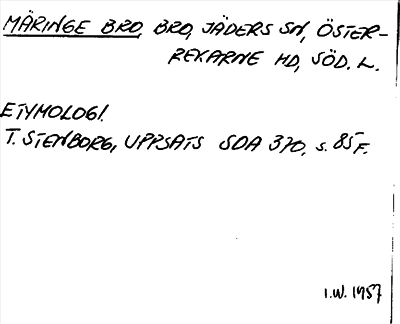 MÄRINGE BRO, BRO, JÄDERS SN, ÖSTER-
REKARNE HD, SÖD. L.
ETYMOLOGI.
T. STENBORG, UPPSATS SOA 370, s. 85 F.
I.W. 1957